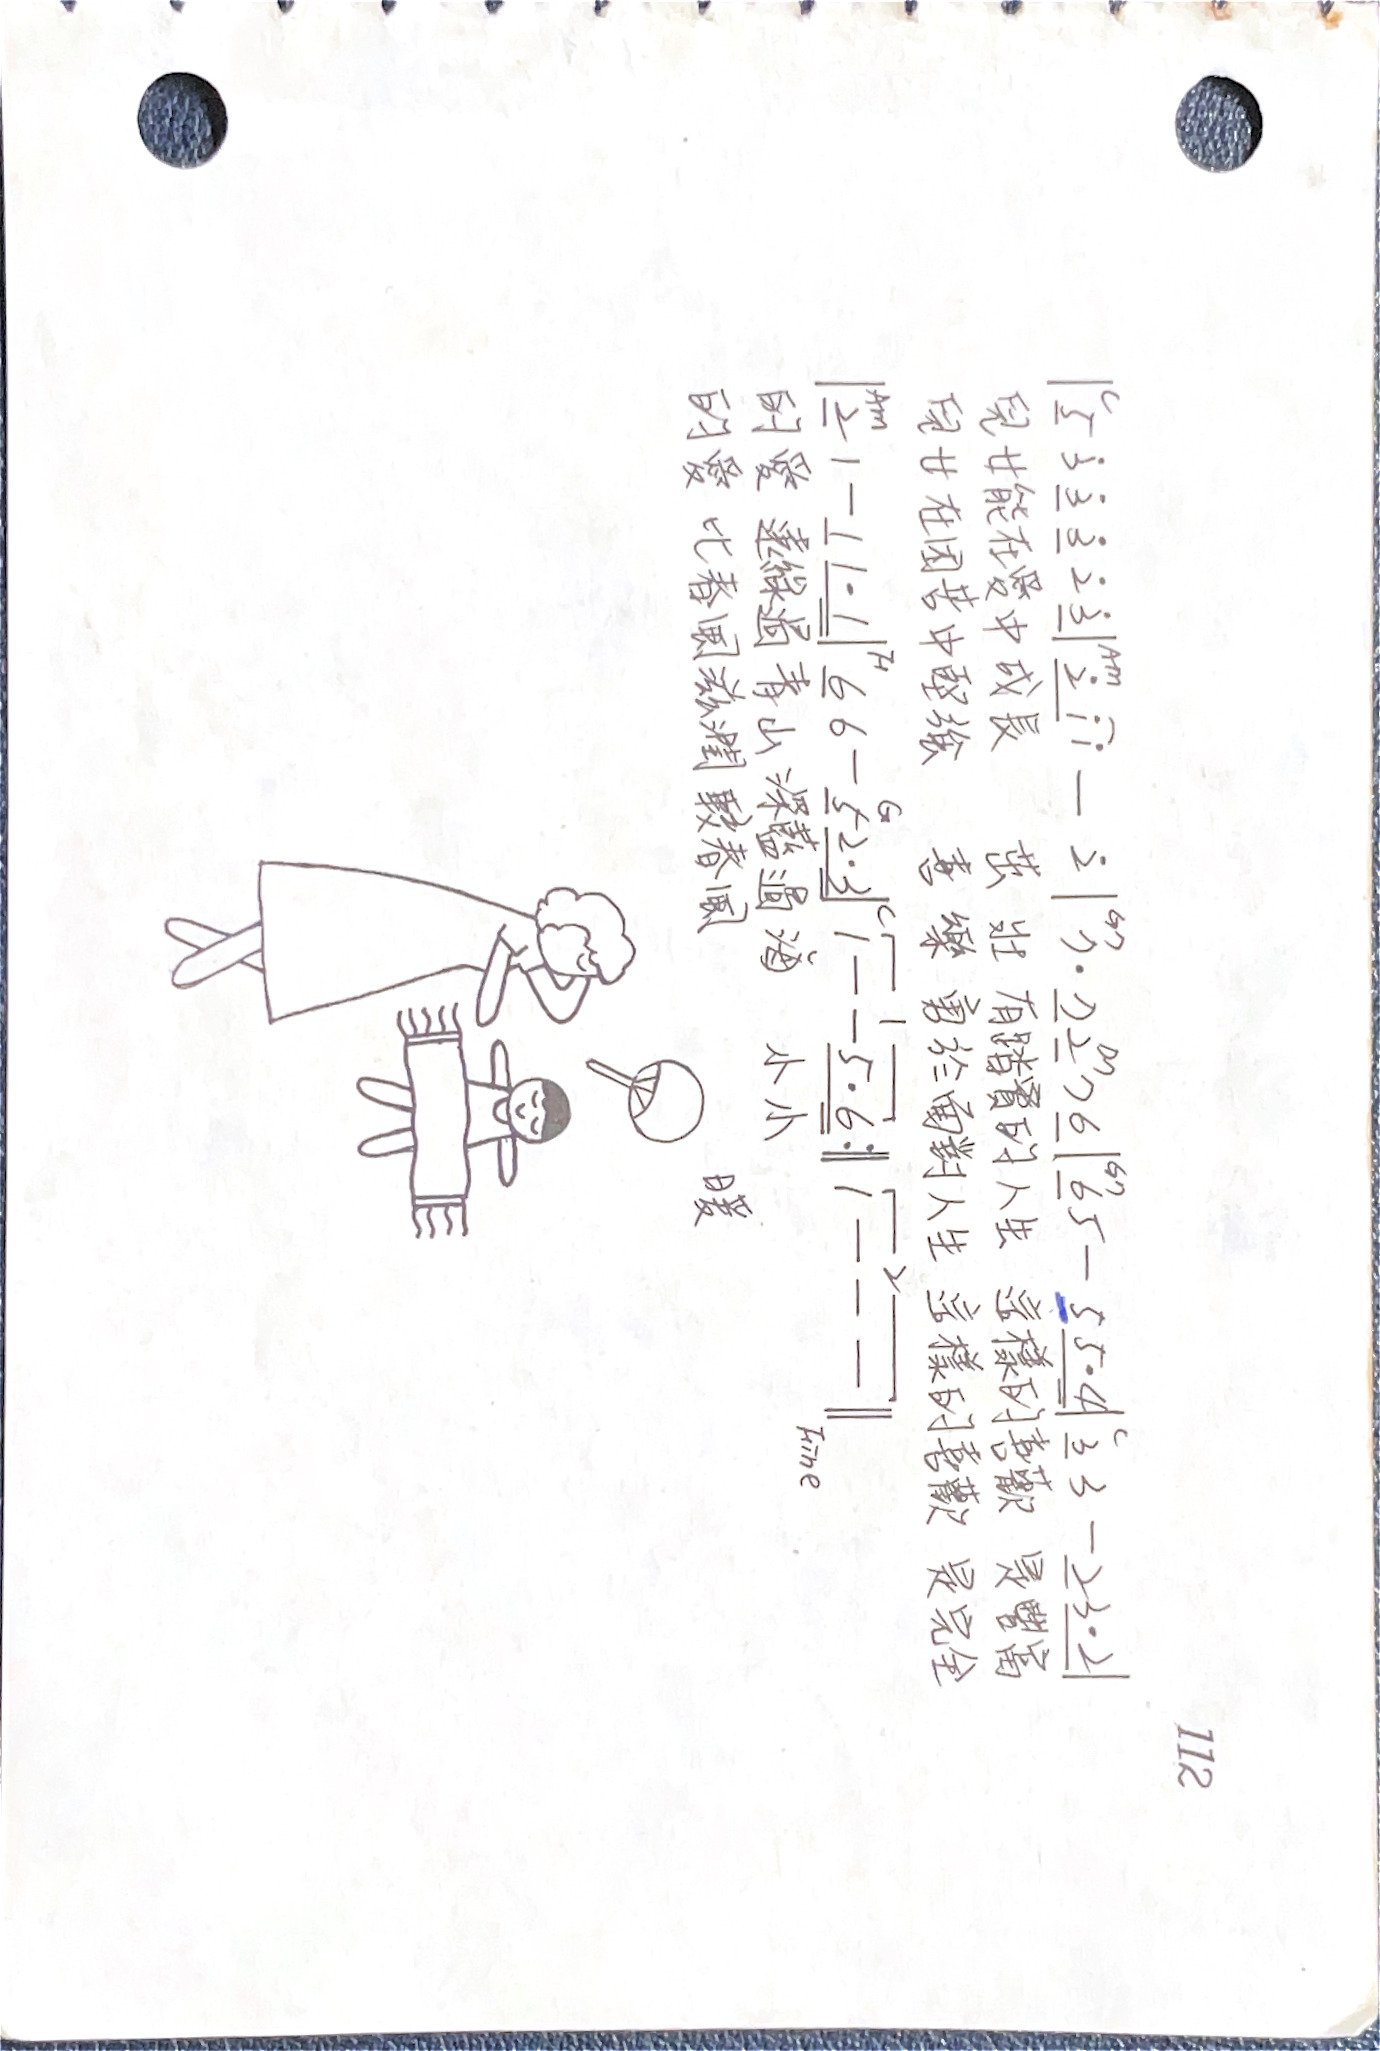 112
C Am G7 D7 G7 C
| 5 3̇ 3̇ 3̇ 2̇ 3̇ | 2̇ 1̇ 1̇ — 2̇ | 7 · 7 2 7 6 | 6 5 — 5 5 · 4 | 3 3 — 2 3 · 2 |
兒女能在愛中成長 茁壯 有踏實的人生 這樣的喜歡 是豐富
兒女在困苦中堅強 喜樂 勇於面對人生 這樣的喜歡 是完全
Am F G C 1 2
| 2 1 — 1 1 · 1 | 6 6 — 5 2 · 3 | 1 — — 5 · 6 :‖ 1 — — — ‖
Fine
的愛 遠綠過青山 深藍過海 小小
的愛 比春風滋潤 較春風 暖